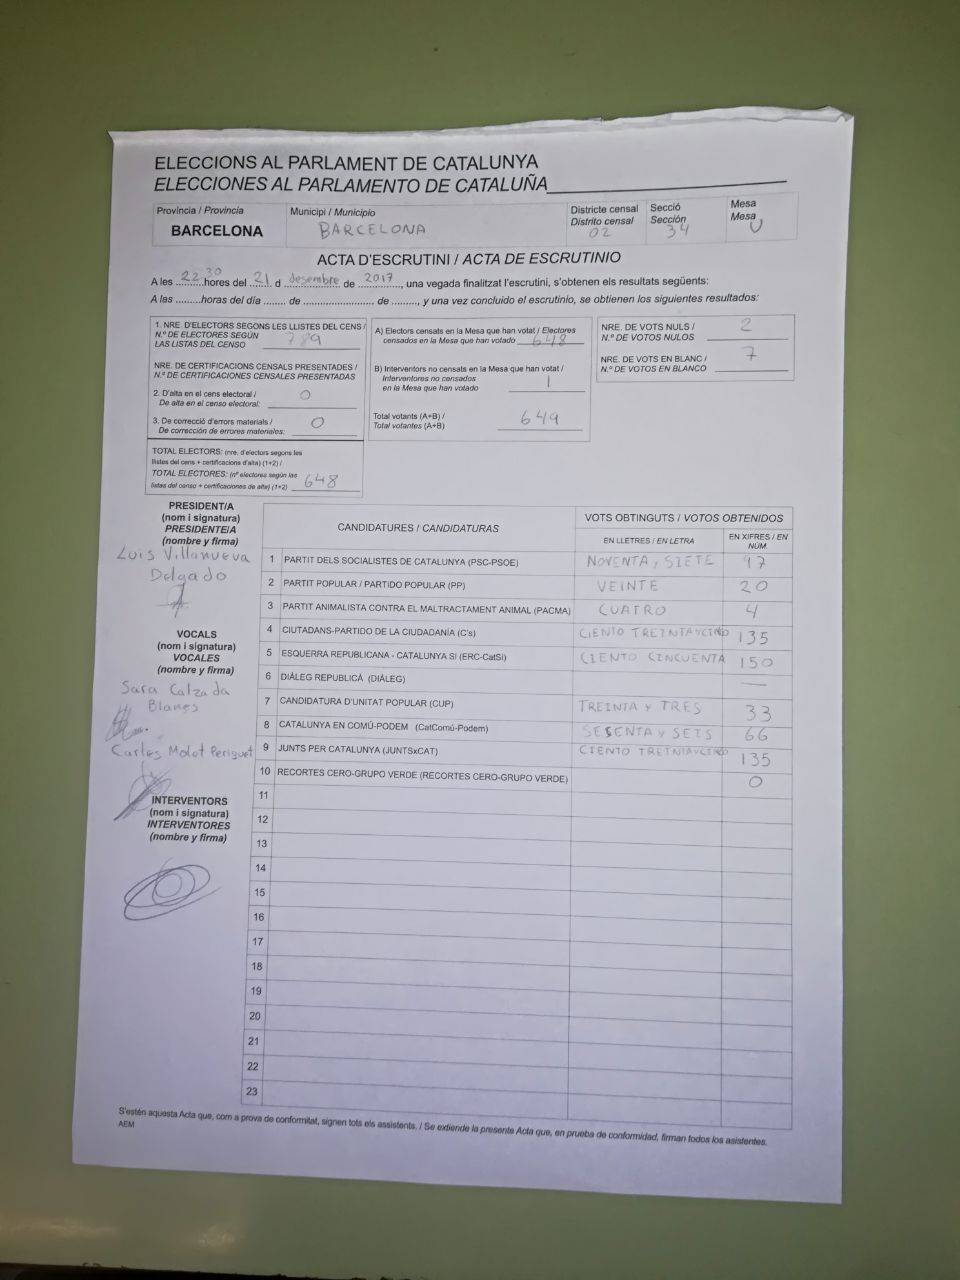 ELECCIONS AL PARLAMENT DE CATALUNYA
ELECCIONES AL PARLAMENTO DE CATALUÑA
Província / Provincia
BARCELONA
Municipi / Municipio
BARCELONA
Districte censal
Distrito censal
02
Secció
Sección
34
Mesa
Mesa
U
ACTA D'ESCRUTINI / ACTA DE ESCRUTINIO
A les 22 30 hores del 21 d desembre de 2017, una vegada finalitzat l'escrutini, s'obtenen els resultats següents:
A las .........horas del día ........ de ......................... de ........., y una vez concluido el escrutinio, se obtienen los siguientes resultados:
1. NRE. D'ELECTORS SEGONS LES LLISTES DEL CENS /
N.º DE ELECTORES SEGÚN
LAS LISTAS DEL CENSO 789
NRE. DE CERTIFICACIONS CENSALS PRESENTADES /
N.º DE CERTIFICACIONES CENSALES PRESENTADAS
2. D'alta en el cens electoral /
De alta en el censo electoral: 0
3. De correcció d'errors materials /
De corrección de errores materiales: 0
TOTAL ELECTORS: (nre. d'electors segons les
llistes del cens + certificacions d'alta) (1+2) /
TOTAL ELECTORES: (nº electores según las
listas del censo + certificaciones de alta) (1+2) 648
A) Electors censats en la Mesa que han votat / Electores
censados en la Mesa que han votado 648
B) Interventors no censats en la Mesa que han votat /
Interventores no censados
en la Mesa que han votado 1
Total votants (A+B) /
Total votantes (A+B) 649
NRE. DE VOTS NULS /
N.º DE VOTOS NULOS 2
NRE. DE VOTS EN BLANC /
N.º DE VOTOS EN BLANCO 7
PRESIDENT/A
(nom i signatura)
PRESIDENTE/A
(nombre y firma)
Luis Villanueva
Delgado
VOCALS
(nom i signatura)
VOCALES
(nombre y firma)
Sara Calzada
Blanes
Carles Molot Periguet
INTERVENTORS
(nom i signatura)
INTERVENTORES
(nombre y firma)
CANDIDATURES / CANDIDATURAS
VOTS OBTINGUTS / VOTOS OBTENIDOS
EN LLETRES / EN LETRA
EN XIFRES / EN NÚM.
1 PARTIT DELS SOCIALISTES DE CATALUNYA (PSC-PSOE) NOVENTA Y SIETE 97
2 PARTIT POPULAR / PARTIDO POPULAR (PP) VEINTE 20
3 PARTIT ANIMALISTA CONTRA EL MALTRACTAMENT ANIMAL (PACMA) CUATRO 4
4 CIUTADANS-PARTIDO DE LA CIUDADANÍA (C's) CIENTO TREINTAYCINO 135
5 ESQUERRA REPUBLICANA - CATALUNYA SI (ERC-CatSí) CIENTO CINCUENTA 150
6 DIÀLEG REPUBLICÀ (DIÀLEG) —
7 CANDIDATURA D'UNITAT POPULAR (CUP) TREINTA Y TRES 33
8 CATALUNYA EN COMÚ-PODEM (CatComú-Podem) SESENTA Y SEIS 66
9 JUNTS PER CATALUNYA (JUNTSxCAT) CIENTO TREINTAYCINO 135
10 RECORTES CERO-GRUPO VERDE (RECORTES CERO-GRUPO VERDE) 0
11
12
13
14
15
16
17
18
19
20
21
22
23
S'estén aquesta Acta que, com a prova de conformitat, signen tots els assistents. / Se extiende la presente Acta que, en prueba de conformidad, firman todos los asistentes.
AEM